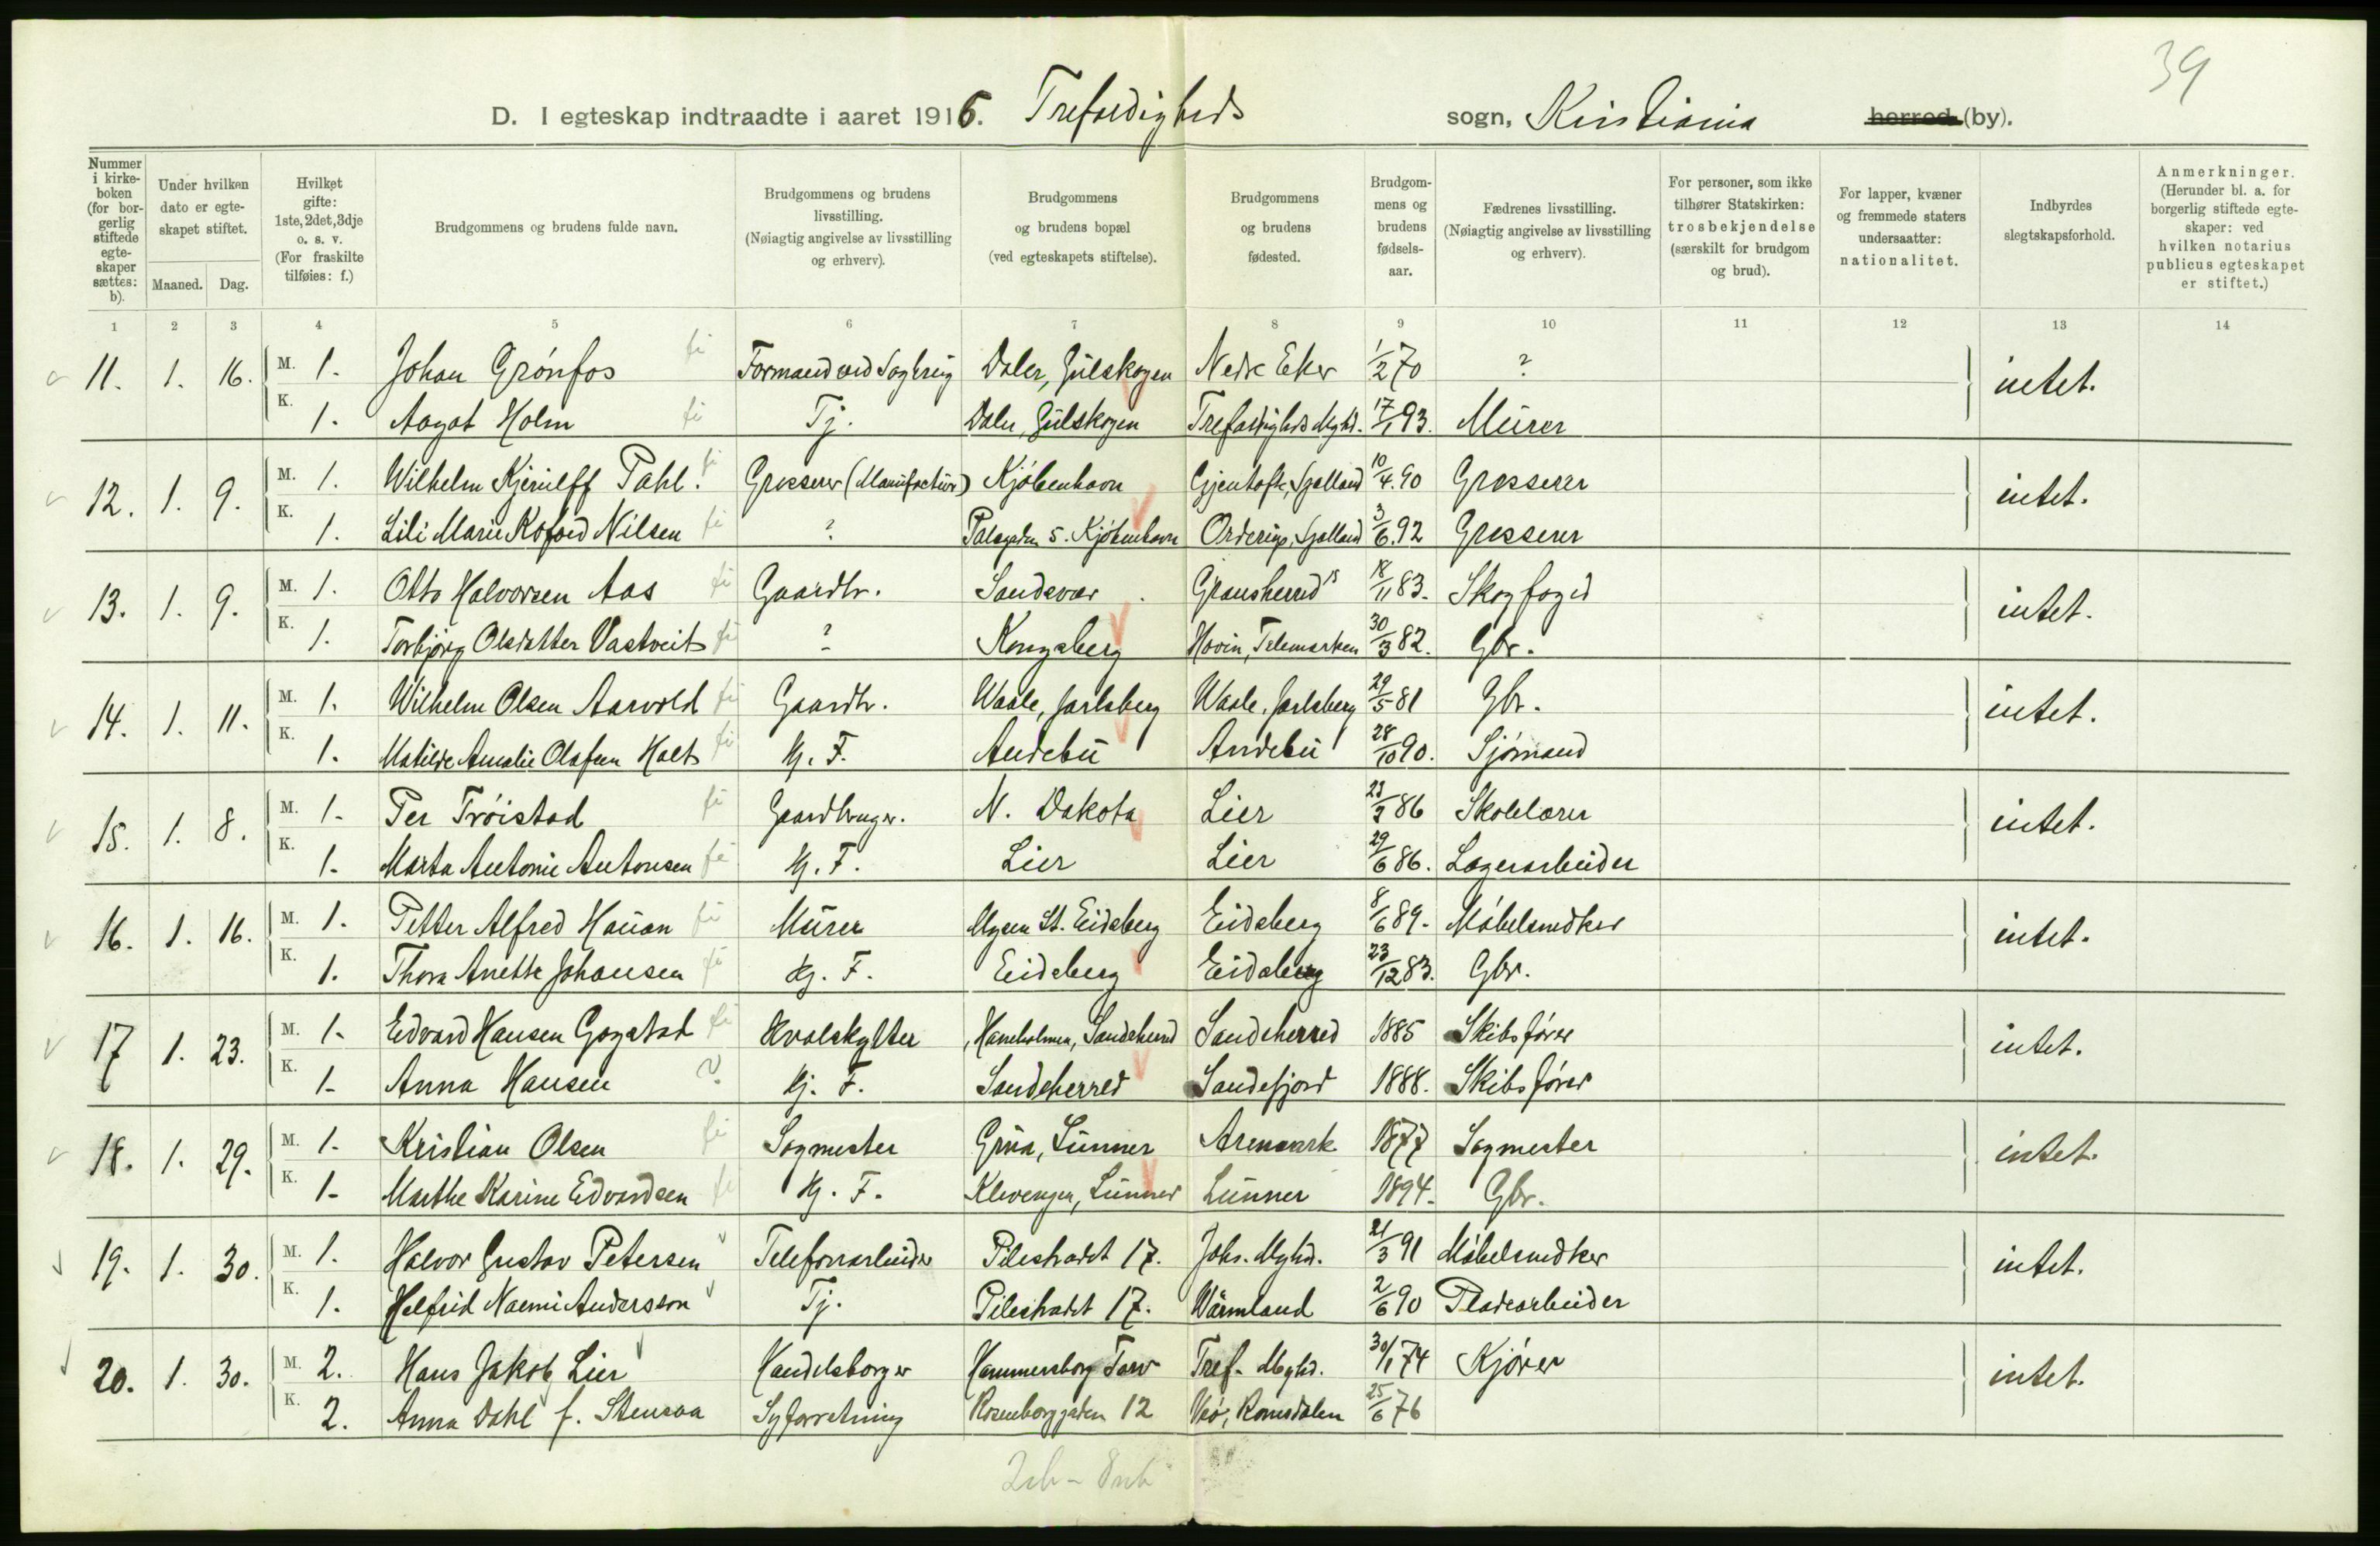 39
D. I egteskap indtraadte i aaret 1916. Trefoldigheds sogn, Kristiania herred (by).
Nummer i kirkeboken (for borgerlig stiftede egteskaper sættes: b).
Under hvilken dato er egteskapet stiftet.
Maaned. Dag.
Hvilket gifte: 1ste, 2det, 3dje o. s. v. (For fraskilte tilføies: f.)
Brudgommens og brudens fulde navn.
Brudgommens og brudens livsstilling. (Nøiagtig angivelse av livsstilling og erhverv).
Brudgommens og brudens bopæl (ved egteskapets stiftelse).
Brudgommens og brudens fødested.
Brudgommens og brudens fødselsaar.
Fædrenes livsstilling. (Nøiagtig angivelse av livsstilling og erhverv).
For personer, som ikke tilhører Statskirken: trosbekjendelse (særskilt for brudgom og brud).
For lapper, kvæner og fremmede staters undersaatter: nationalitet.
Indbyrdes slegtskapsforhold.
Anmerkninger. (Herunder bl. a. for borgerlig stiftede egteskaper: ved hvilken notarius publicus egteskapet er stiftet.)
1 2 3 4 5 6 7 8 9 10 11 12 13 14
11. 1. 16. M. 1. Johan Grönfos Formand ved Sagbrug Doler, Gulskogen Nedre Eker 1/2 70 ? intet.
K. 1. Aagot Holm Tj. Doler, Gulskogen Trefoldigheds Mghd. 17/1 93. Murer
12. 1. 9. M. 1. Wilhelm Kjerulff Pahl. Grosserer (Manufactur) Kjöbenhavn Gjentofte, Sjælland 10/4. 90 Grosserer intet.
K. 1. Lili Marie Kofoed Nilsen ? Kjöbenhavn Ordrup, Sjælland 3/6. 92 Grosserer
13. 1. 9. M. 1. Otto Halvorsen Aas Gaardbr. Sandsvær Gransherred 18/11 83. Skogfoged intet.
K. 1. Torbjörg Olsdatter Vastveit ? Kongsberg Hovin, Telemarken 30/3 82. Gbr.
14. 1. 11. M. 1. Wilhelm Olsen Aarvold Gaardbr. Waale, Jarlsberg Waale, Jarlsberg 29/5 81 Gbr. intet.
K. 1. Matilde Amalie Olafsen Holt Hj. F. Andebu Andebu 28/10 90. Sjömand
15. 1. 8. M. 1. Per Tröistad Gaardbruger. N. Dakota Lier 86 Skolelærer intet.
K. 1. Marta Antonie Antonsen Hj. F. Lier Lier 29/6 86. Lagerarbeider
16. 1. 16. M. 1. Petter Alfred Hauan Murer Mysen St. Eidsberg Eidsberg 8/6 89. Möbelsnedker intet.
K. 1. Thora Anette Johansen Hj. F. Eidsberg Eidsberg 23/12 83. Gbr.
17 1. 23. M. 1. Edvard Hansen Gogstad Hvalskytter Sandeherred Sandeherred 1885 Skibsförer intet.
K. 1. Anna Hansen Hj. F. Sandeherred Sandefjord 1888. Skibsförer
18. 1. 29. M. 1. Kristian Olsen Sagmester Grua, Lunner Aremark 1877 Sagmester intet.
K. 1. Marthe Karine Edvardsen Hj. F. Klevengen, Lunner Lunner 1894. Gbr.
19. 1. 30. M. 1. Halvor Gustav Petersen Telefonarbeider Pilestrædet 17. Johs. Mghd. 21/3 91 Möbelsnedker intet.
K. 1. Helfrid Naemi Andersson Tj. Pilestrædet 17. Wärmland 2/6 90 Pladearbeider
20. 1. 30. M. 2. Hans Jakob Lier Handelsborger Hammersborg Torv Tref. Mghd. 30/1 74 Kjörer intet.
K. 2. Anna Dahl f. Stensaa Syforretning Rosenborggaden 12 Veö, Romsdalen 25/6 76